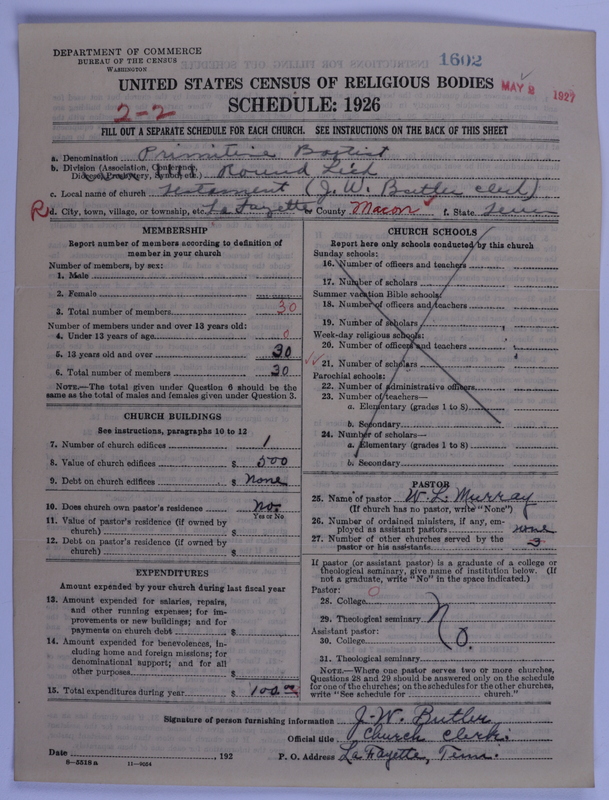 DEPARTMENT OF COMMERCE
BUREAU OF THE CENSUS
WASHINGTON
1602
UNITED STATES CENSUS OF RELIGIOUS BODIES
MAY 2 1927
2-2
SCHEDULE: 1926
FILL OUT A SEPARATE SCHEDULE FOR EACH CHURCH. SEE INSTRUCTIONS ON THE BACK OF THIS SHEET
a. Denomination Primitive Baptist
b. Division (Association, Conference, Diocese, Presbytery, Synod, etc.) Round Lick
c. Local name of church Testament (J. W. Butler clerk)
R d. City, town, village, or township, etc. La Fayette County Macon f. State Tenn
MEMBERSHIP
Report number of members according to definition of member in your church
Number of members, by sex:
1. Male
2. Female
3. Total number of members 30
Number of members under and over 13 years old:
4. Under 13 years of age 0
5. 13 years old and over 30
6. Total number of members 30
NOTE.—The total given under Question 6 should be the same as the total of males and females given under Question 3.
CHURCH BUILDINGS
See instructions, paragraphs 10 to 12
7. Number of church edifices 1
8. Value of church edifices $ 500
9. Debt on church edifices $ None
10. Does church own pastor's residence? no.
Yes or No
11. Value of pastor's residence (if owned by church) $
12. Debt on pastor's residence (if owned by church) $
EXPENDITURES
Amount expended by your church during last fiscal year
13. Amount expended for salaries, repairs, and other running expenses; for improvements or new buildings; and for payments on church debt $
14. Amount expended for benevolences, including home and foreign missions; for denominational support; and for all other purposes $
15. Total expenditures during year $ 100.00
CHURCH SCHOOLS
Report here only schools conducted by this church
Sunday schools:
16. Number of officers and teachers
17. Number of scholars
Summer vacation Bible schools:
18. Number of officers and teachers
19. Number of scholars
Week-day religious schools:
20. Number of officers and teachers
21. Number of scholars
Parochial schools:
22. Number of administrative officers
23. Number of teachers—
a. Elementary (grades 1 to 8)
b. Secondary
24. Number of scholars—
a. Elementary (grades 1 to 8)
b. Secondary
PASTOR
25. Name of pastor W. L. Murray
(If church has no pastor, write "None")
26. Number of ordained ministers, if any, employed as assistant pastors none
27. Number of other churches served by the pastor or his assistants 3
If pastor (or assistant pastor) is a graduate of a college or theological seminary, give name of institution below. (If not a graduate, write "No" in the space indicated.)
Pastor: 0
28. College
29. Theological seminary No.
Assistant pastor:
30. College
31. Theological seminary
NOTE.—Where one pastor serves two or more churches, Questions 28 and 29 should be answered only on the schedule for one of the churches; on the schedules for the other churches, write "See schedule for church."
Signature of person furnishing information J. W. Butler
Official title Church Clerk.
Date , 192
P. O. Address La Fayette, Tenn.
8—5518 a 11—9054